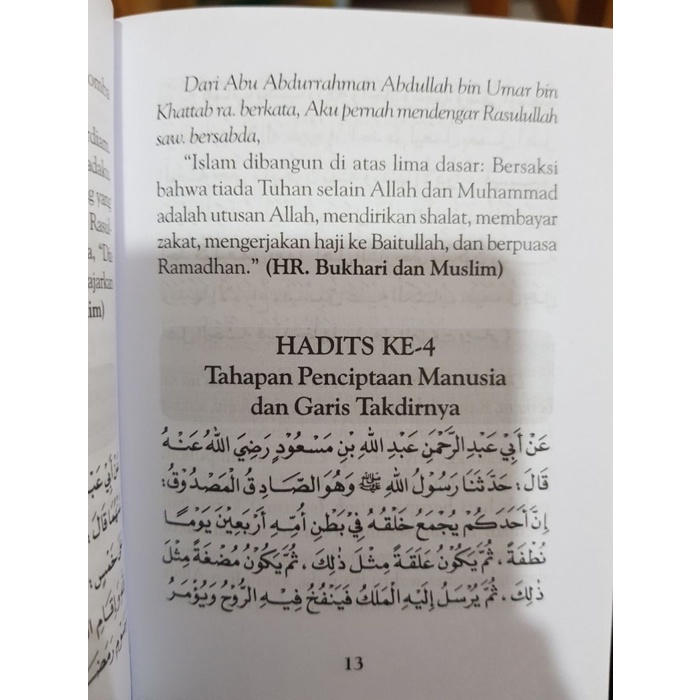 Dari Abu Abdurrahman Abdullah bin Umar bin
Khattab ra. berkata, Aku pernah mendengar Rasulullah
saw. bersabda,
“Islam dibangun di atas lima dasar: Bersaksi
bahwa tiada Tuhan selain Allah dan Muhammad
adalah utusan Allah, mendirikan shalat, membayar
zakat, mengerjakan haji ke Baitullah, dan berpuasa
Ramadhan.” (HR. Bukhari dan Muslim)
HADITS KE-4
Tahapan Penciptaan Manusia
dan Garis Takdirnya
عَنْ أَبِيْ عَبْدِ الرَّحْمَنِ عَبْدِ اللهِ بْنِ مَسْعُوْدٍ رَضِيَ اللهُ عَنْهُ
قَالَ: حَدَّثَنَا رَسُوْلُ اللهِ ﷺ وَهُوَ الصَّادِقُ الْمَصْدُوْقُ:
إِنَّ أَحَدَكُمْ يُجْمَعُ خَلْقُهُ فِيْ بَطْنِ أُمِّهِ أَرْبَعِيْنَ يَوْمًا
نُطْفَةً، ثُمَّ يَكُوْنُ عَلَقَةً مِثْلَ ذٰلِكَ، ثُمَّ يَكُوْنُ مُضْغَةً مِثْلَ
ذٰلِكَ، ثُمَّ يُرْسَلُ إِلَيْهِ الْمَلَكُ فَيَنْفُخُ فِيْهِ الرُّوْحَ وَيُؤْمَرُ
13